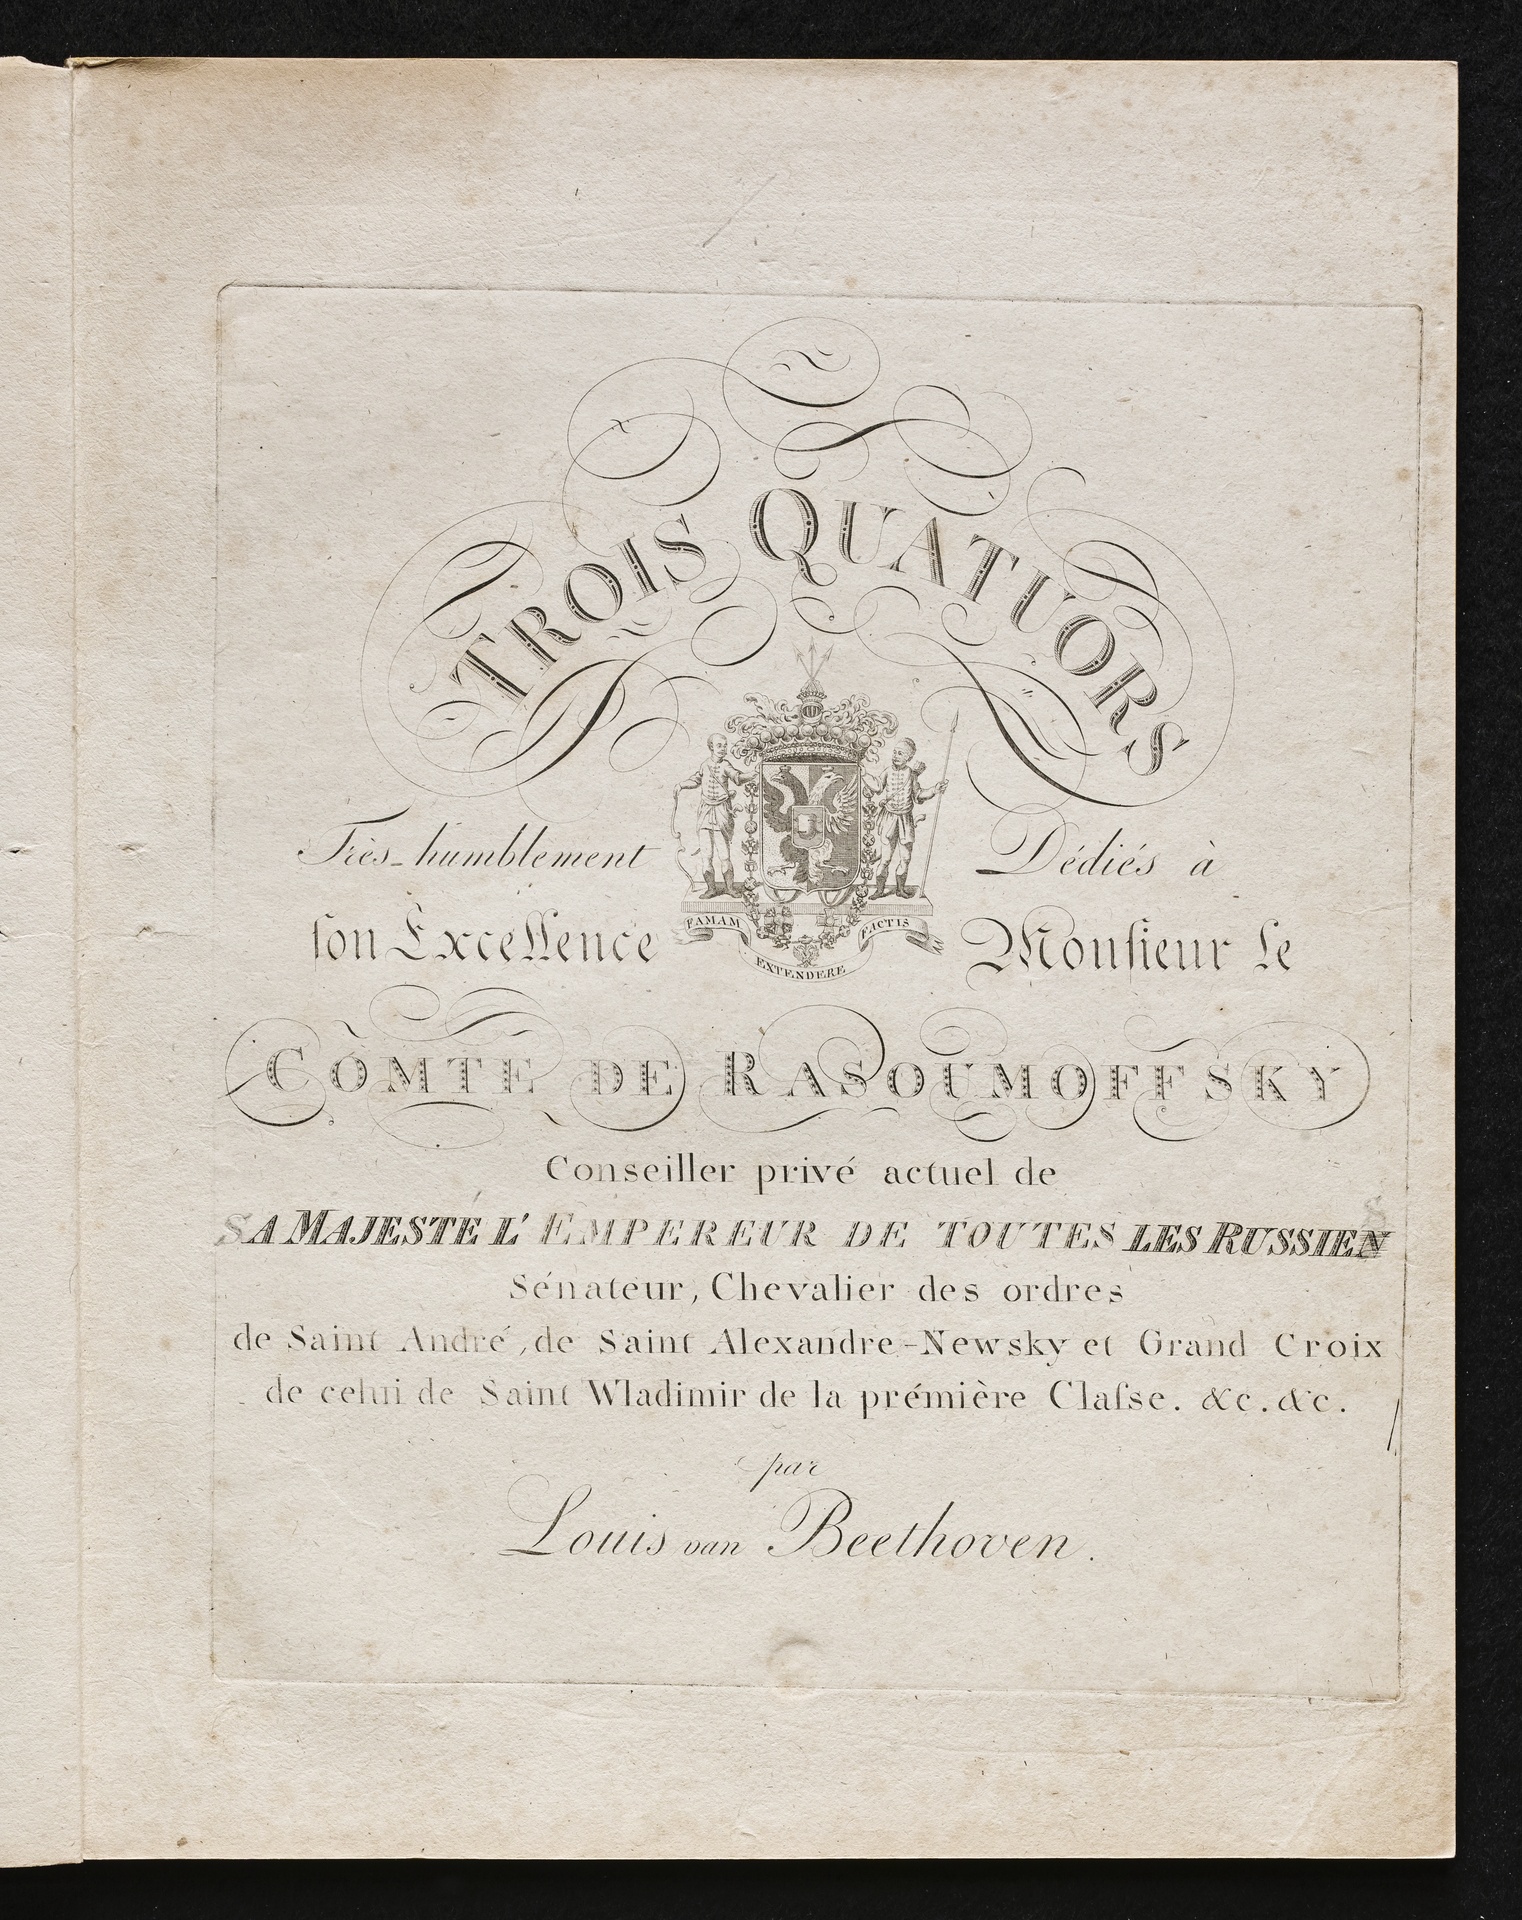 TROIS QUATUORS
Très-humblement Dédiés à
ſon Excellence Monſieur le
FAMAM EXTENDERE FACTIS
COMTE DE RASOUMOFFSKY
Conseiller privé actuel de
SA MAJESTÉ L'EMPEREUR DE TOUTES LES RUSSIENS
Sénateur, Chevalier des ordres
de Saint André, de Saint Alexandre-Newsky et Grand Croix
de celui de Saint Wladimir de la prémière Claſse. &c. &c.
par
Louis van Beethoven.